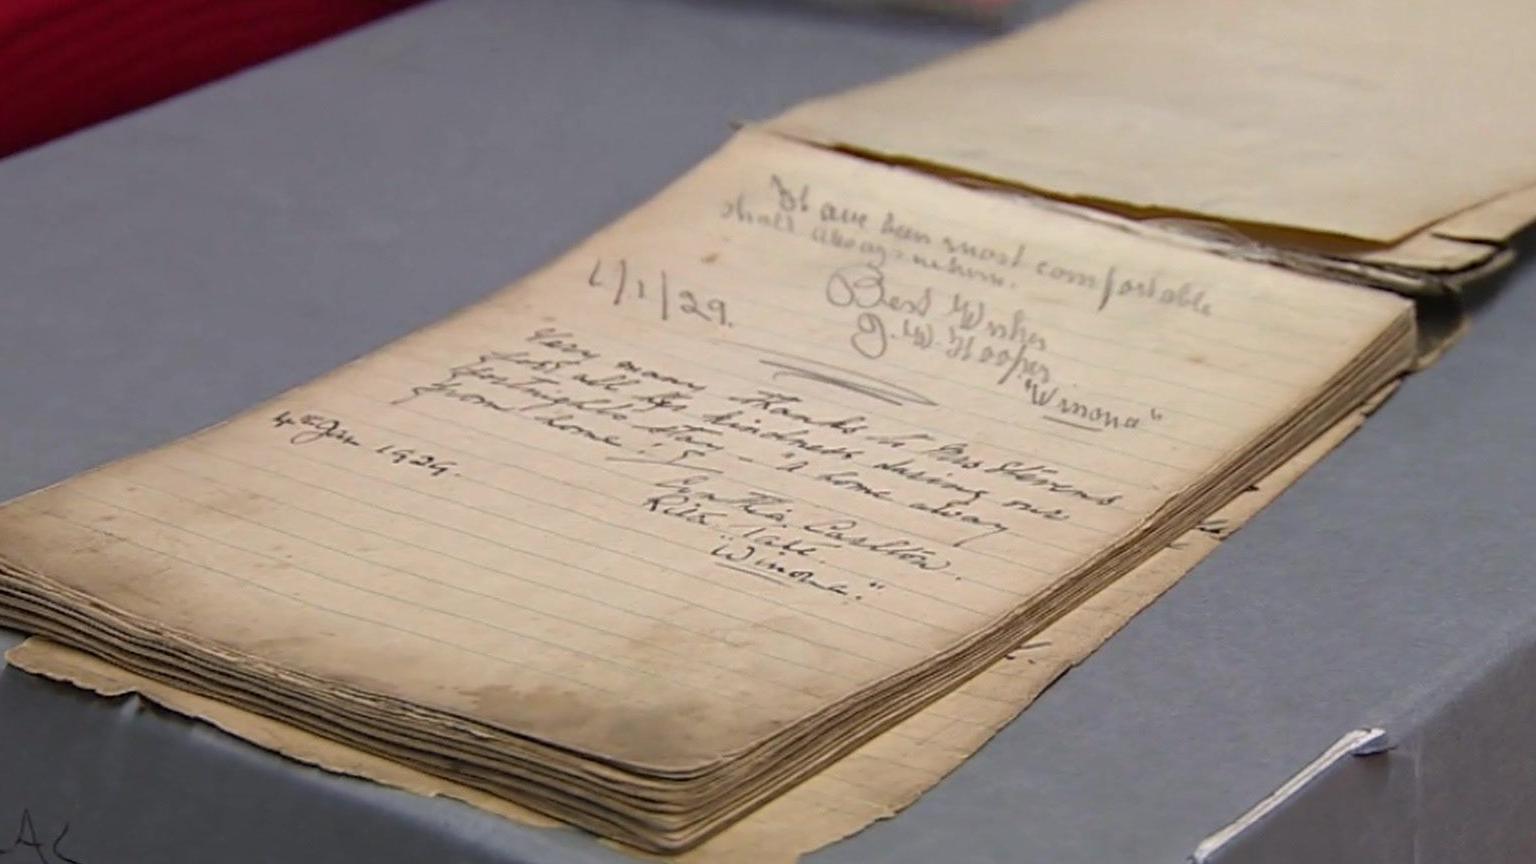 It ave been most comfortable
shall always return.
Best Wishes
J. W. Hooper
"Winona"
2/1/29.
Very many thanks to Mrs Stevens
for all her kindness during our
fortnights stay - "A home away
from home."
Cynthia Carlton.
Rita Tate
"Winona."
4th Jan 1929.